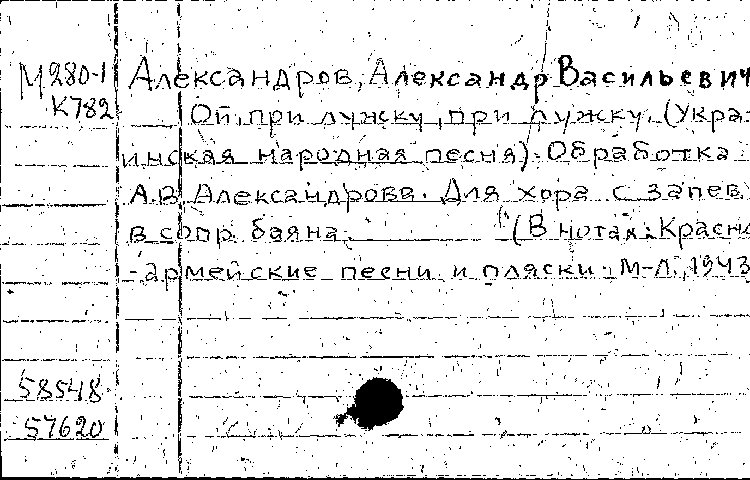 М280-1 Александров, Александр Васильевич
К782 Ой, при лужку, при лужку. (Укра-
инская народная песня). Обработка
А.В. Александрова. Для хора с запев.
в сопр. баяна. (В нотах: Красно
-армейские песни и пляски. М-Л., 1943
58548
57620